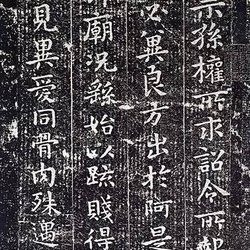 示孫權所求詔令所報
必冀良方出於阿是
廟況繇始以疏賤得
見異愛同骨肉殊遇